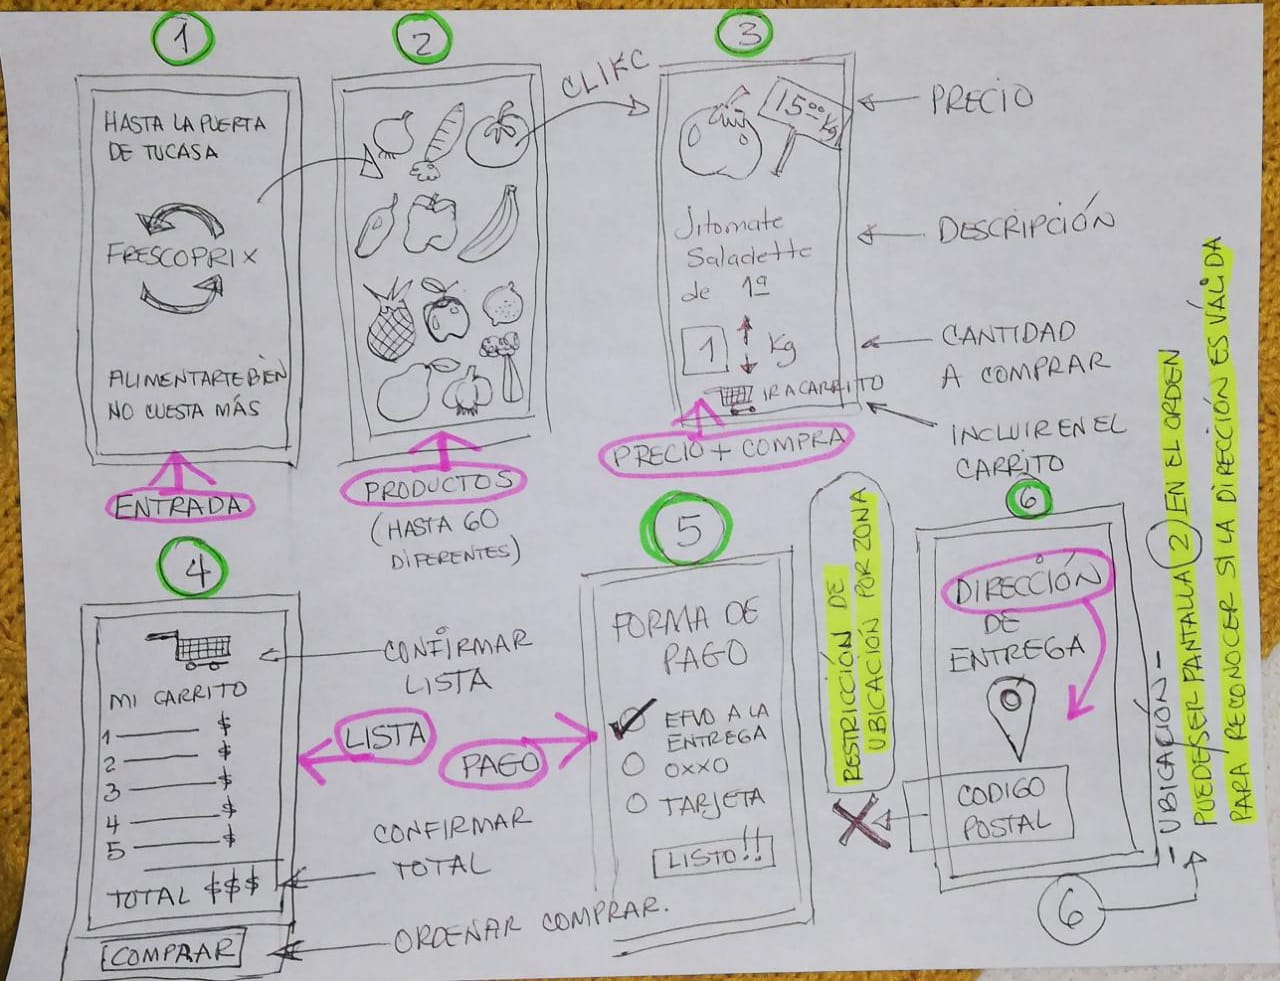 1
HASTA LA PUERTA
DE TU CASA
FRESCOPRIX
ALIMENTARTE BIEN
NO CUESTA MÁS
ENTRADA
2
CLIKC
PRODUCTOS
(HASTA 60
DIFERENTES)
3
15.00 Kg
Jitomate
Saladette
de 1ª
1 Kg
IR A CARRITO
PRECIO + COMPRA
PRECIO
DESCRIPCIÓN
CANTIDAD
A COMPRAR
INCLUIR EN EL
CARRITO
4
MI CARRITO
1 $
2 $
3 $
4 $
5 $
TOTAL $$$
COMPRAR
CONFIRMAR
LISTA
LISTA
PAGO
CONFIRMAR
TOTAL
ORDENAR COMPRAR.
5
FORMA DE
PAGO
EFVO A LA
ENTREGA
OXXO
TARJETA
LISTO!!
RESTRICCIÓN DE
UBICACIÓN POR ZONA
6
DIRECCIÓN
DE
ENTREGA
CODIGO
POSTAL
6
- UBICACIÓN -
PUEDE SER PANTALLA 2 EN EL ORDEN
PARA RECONOCER SI LA DIRECCIÓN ES VÁLIDA